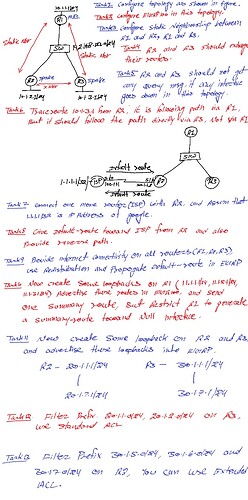 Task-1 Configure topology as shown in figure.
Task-2 Configure EIGRP in this topology.
Task-3 Configure static Neighborship between R1 and R2, R1 and R3.
Task-4 R2 and R3 should exchange their routes.
Task-5 R2 and R3 should not get any query msg. if any interface goes down in this topology.
10.1.1.1/24
R1
HUB
Static nbr
Static nbr
SW
R2
spoke
R3
spoke
10.1.2.1/24
10.1.3.1/24
Task-6 Traceroute 10.1.3.1 from R2, it is following path via R1, But it should follow the path directly via R3, Not via R1
R1
SW
default-route
1.1.1.1/32
ISP
R2
R3
default route
Task-7 Connect one more router (ISP) with R2, and Assume that 1.1.1.1/32 is IP Address of google.
Task-8 Give default-route toward ISP from R2 and also provide reverse path.
Task-9 Provide internet connectivity on all routers (R1, R2, R3) use Redistribution and Propagate default-route in EIGRP.
Now create some loopbacks on R1
Advertise these routes in EIGRP, and send one Summary route, But Restrict R1 to generate a summary-route toward Null interface.
Task-11 Now create some loopback on R2 and R3, and advertise these loopbacks into EIGRP.
R2 - 20.1.1.1/24
R3 - 30.1.1.1/24
20.1.7.1/24
30.1.7.1/24
Filter Prefix 20.1.1.0/24, 20.1.2.0/24 on R3, use standard ACL
Filter Prefix 30.1.5.0/24, 30.1.6.0/24 and 30.1.7.0/24 on R2, You can use Extended ACL.